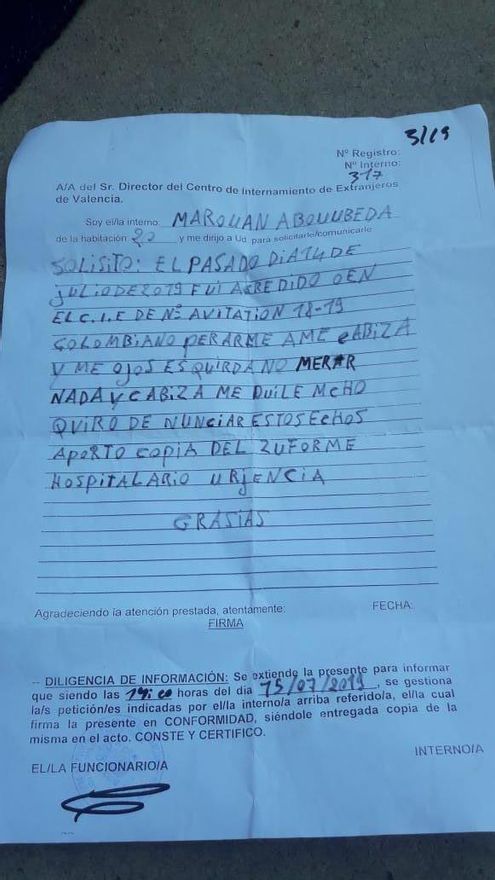 3/19
Nº Registro:
Nº Interno:
317
A/A del Sr. Director del Centro de Internamiento de Extranjeros
de Valencia.
Soy el/la interno: MAROUAN ABOUUBEDA
de la habitación 20 y me dirijo a Ud. para solicitarle/comunicarle
SOLISITO: EL PASADO DIA 14 DE
JULIO DE 2019 FUI AGREDIDO OEN
EL C.I.E DE Nº AVITATION 18-19
COLOMBIANO PERARME AME CABIZA
Y ME OJOS ESQUIRDA NO MERAR
NADA Y CABIZA ME DUILE MCHO
QUIRO DE NUNCIAR ESTOS ECHOS
APORTO COPIA DEL ZUFORME
HOSPITALARIO URJENCIA
GRASIAS
Agradeciendo la atención prestada, atentamente: FECHA:
FIRMA
-- DILIGENCIA DE INFORMACIÓN: Se extiende la presente para informar
que siendo las 14:00 horas del día 15/07/2019, se gestiona
la/s petición/es indicadas por el/la interno/a arriba referido/a, el/la cual
firma la presente en CONFORMIDAD, siéndole entregada copia de la
misma en el acto. CONSTE Y CERTIFICO.
INTERNO/A
EL/LA FUNCIONARIO/A